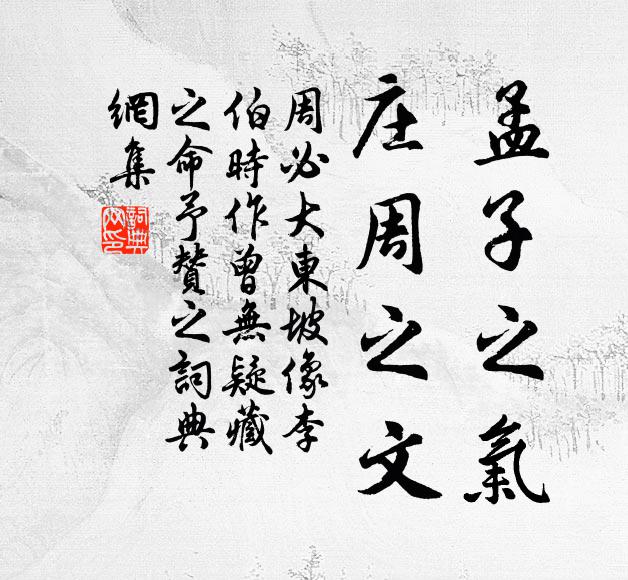 孟子之氣
庄周之文
周必大東坡像李
伯時作曾無疑藏
之命予贊之詞典
網集
詞典
网印